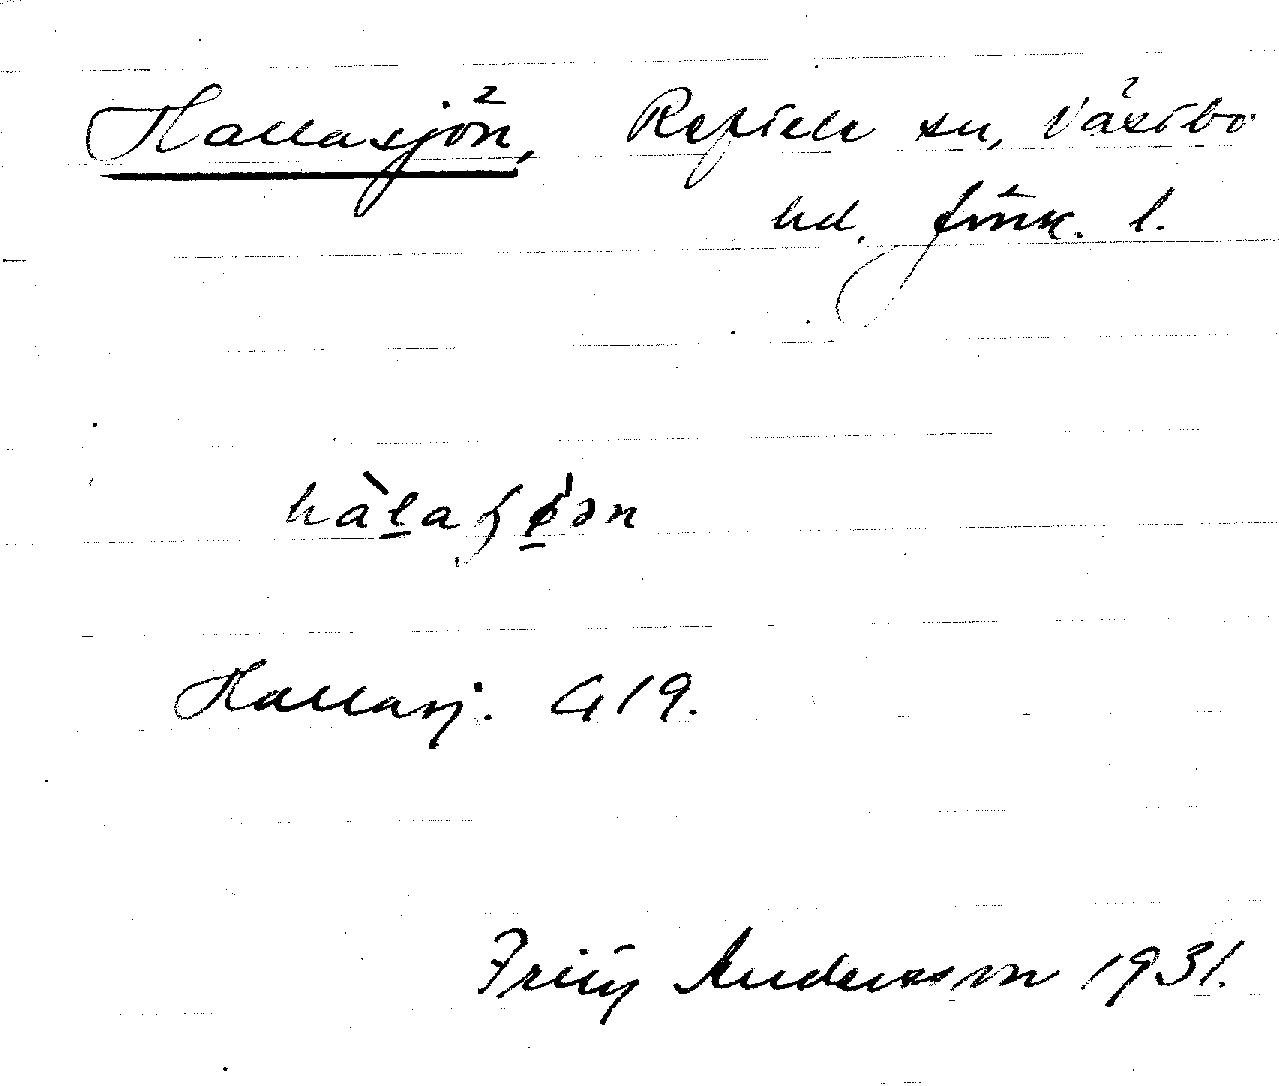 Hallasjön, Reftele sn, Västbo
hd. Jönk. l.
hàlaʃø̀ən
Hallasj. G 19.
Fritz Andersson 1931.